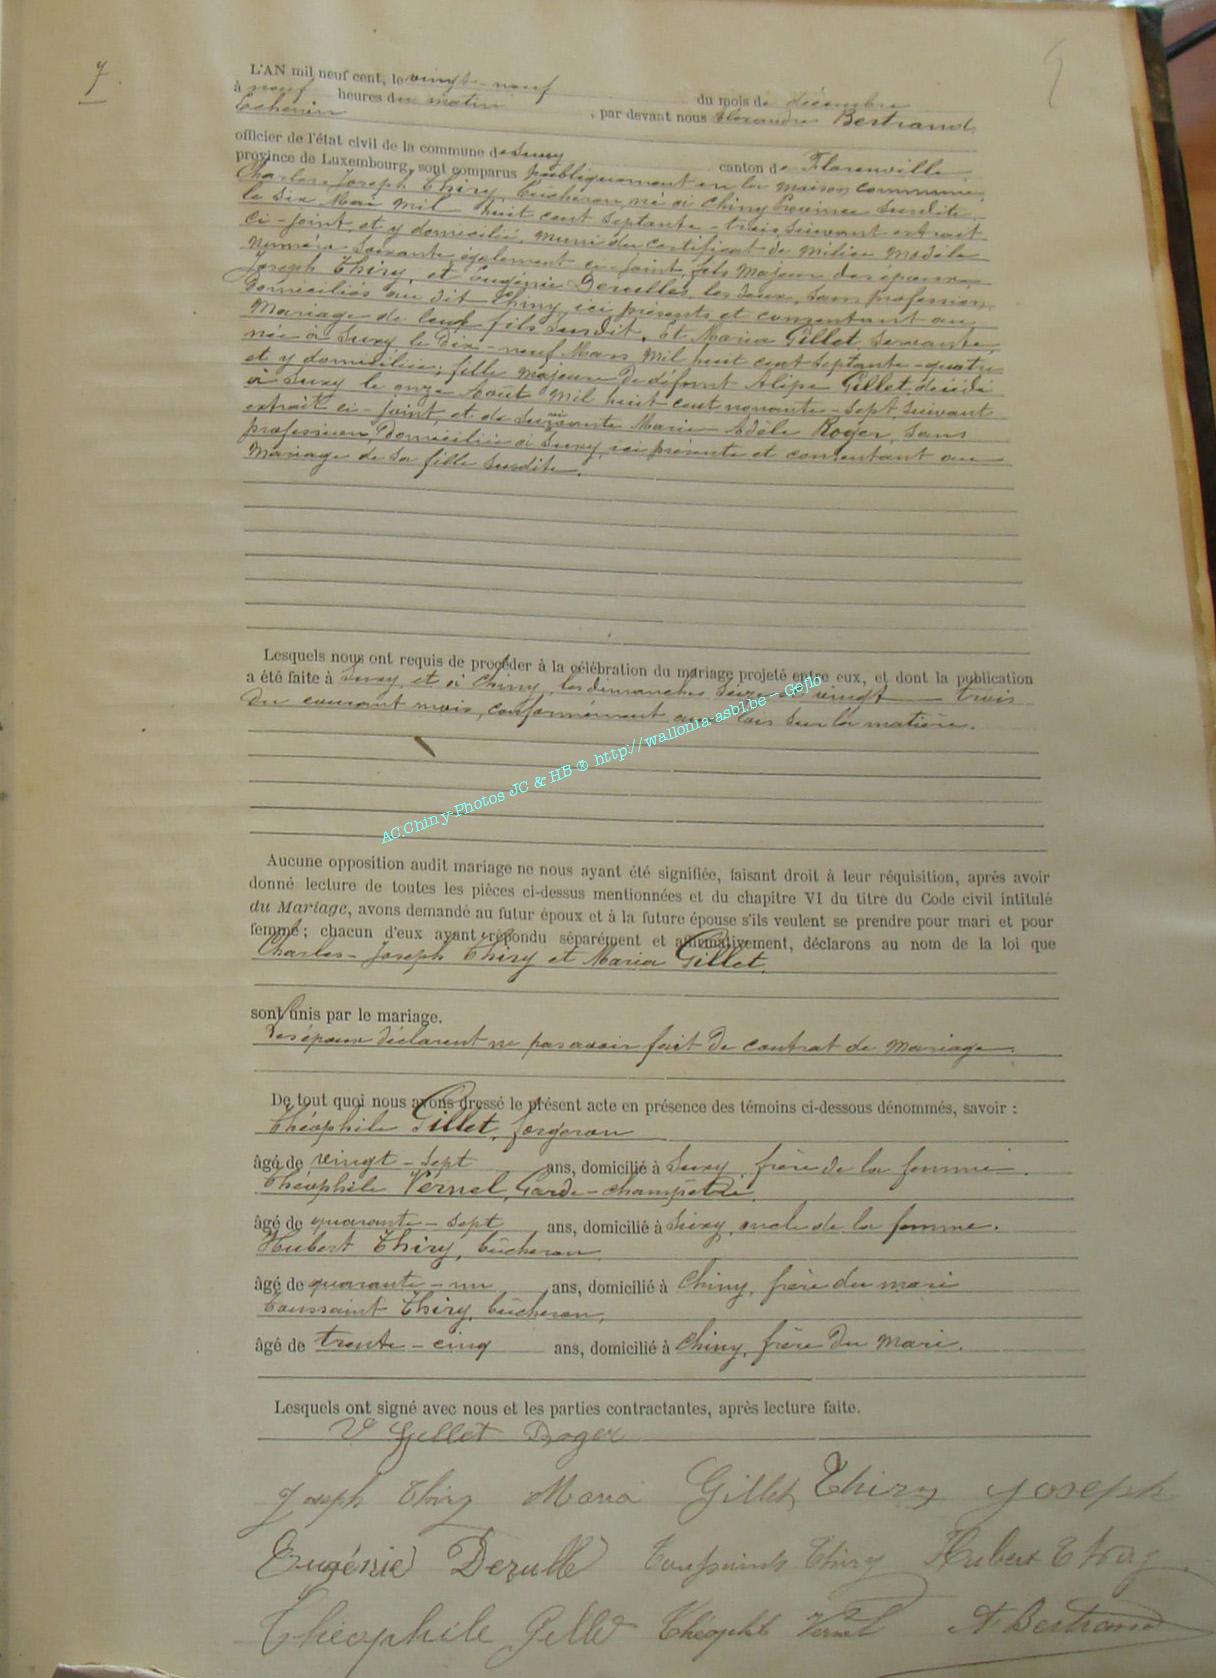 7
L'AN mil neuf cent, le vingt-neuf du mois de décembre
à neuf heures du matin, par devant nous Alexandre Bertrand,
Échevin
officier de l'état civil de la commune de Suxy canton de Florenville
province de Luxembourg, sont comparus publiquement en la maison commune,
Charles-Joseph Thiry, bûcheron, né à Chiny Province susdite,
le six Mai mil huit cent septante-trois, suivant extrait
ci-joint, et y domicilié, muni du certificat de milice modèle
numéro soixante également ci-joint, fils majeur des époux
Joseph Thiry, et Eugénie Derulle, les deux, sans profession,
domiciliés au dit Chiny, ici présents et consentant au
Mariage de leur fils susdit. Et Maria Gillet, servante,
née à Suxy le dix-neuf Mars mil huit cent septante-quatre
et y domiciliée; fille majeure de défunt Alipe Gillet, décédé
à Suxy le onze Août mil huit cent nonante-sept suivant
extrait ci-joint, et de survivante Marie-Adèle Roger, sans
profession, domiciliée à Suxy, ici présente et consentant au
Mariage de sa fille susdite.
Lesquels nous ont requis de procéder à la célébration du mariage projeté entre eux, et dont la publication
a été faite à Suxy et à Chiny, les dimanches seize et vingt trois
du courant mois, conformément aux lois sur la matière.
AC.Chiny-Photos JC & HB ® http://wallonia-asbl.be - Gejlo
Aucune opposition audit mariage ne nous ayant été signifiée, faisant droit à leur réquisition, après avoir
donné lecture de toutes les pièces ci-dessus mentionnées et du chapitre VI du titre du Code civil intitulé
du Mariage, avons demandé au futur époux et à la future épouse s'ils veulent se prendre pour mari et pour
femme; chacun d'eux ayant répondu séparément et affirmativement, déclarons au nom de la loi que
Charles-Joseph Thiry et Maria Gillet.
sont unis par le mariage.
Les époux déclarent ne pas avoir fait de contrat de mariage.
De tout quoi nous avons dressé le présent acte en présence des témoins ci-dessous dénommés, savoir :
Théophile Gillet, forgeron
âgé de vingt-sept ans, domicilié à Suxy, frère de la femme.
Théophile Vernel, Garde-champêtre,
âgé de quarante-sept ans, domicilié à Suxy, oncle de la femme.
Hubert Thiry, bûcheron
âgé de quarante-un ans, domicilié à Chiny, frère du mari
Toussaint Thiry, bûcheron,
âgé de trente-cinq ans, domicilié à Chiny, frère du mari.
Lesquels ont signé avec nous et les parties contractantes, après lecture faite.
Ve Gillet Roger
Joseph Thiry Maria Gillet Thiry Joseph
Eugénie Derulle Toussaint Thiry Hubert Thiry
Théophile Gillet Théophile Vernel A Bertrand